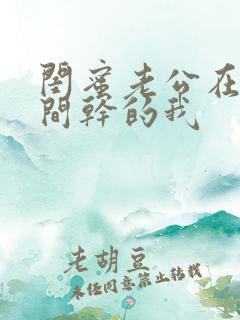 閨蜜老公在
間幹的我
老胡豆
未经同意禁止转载